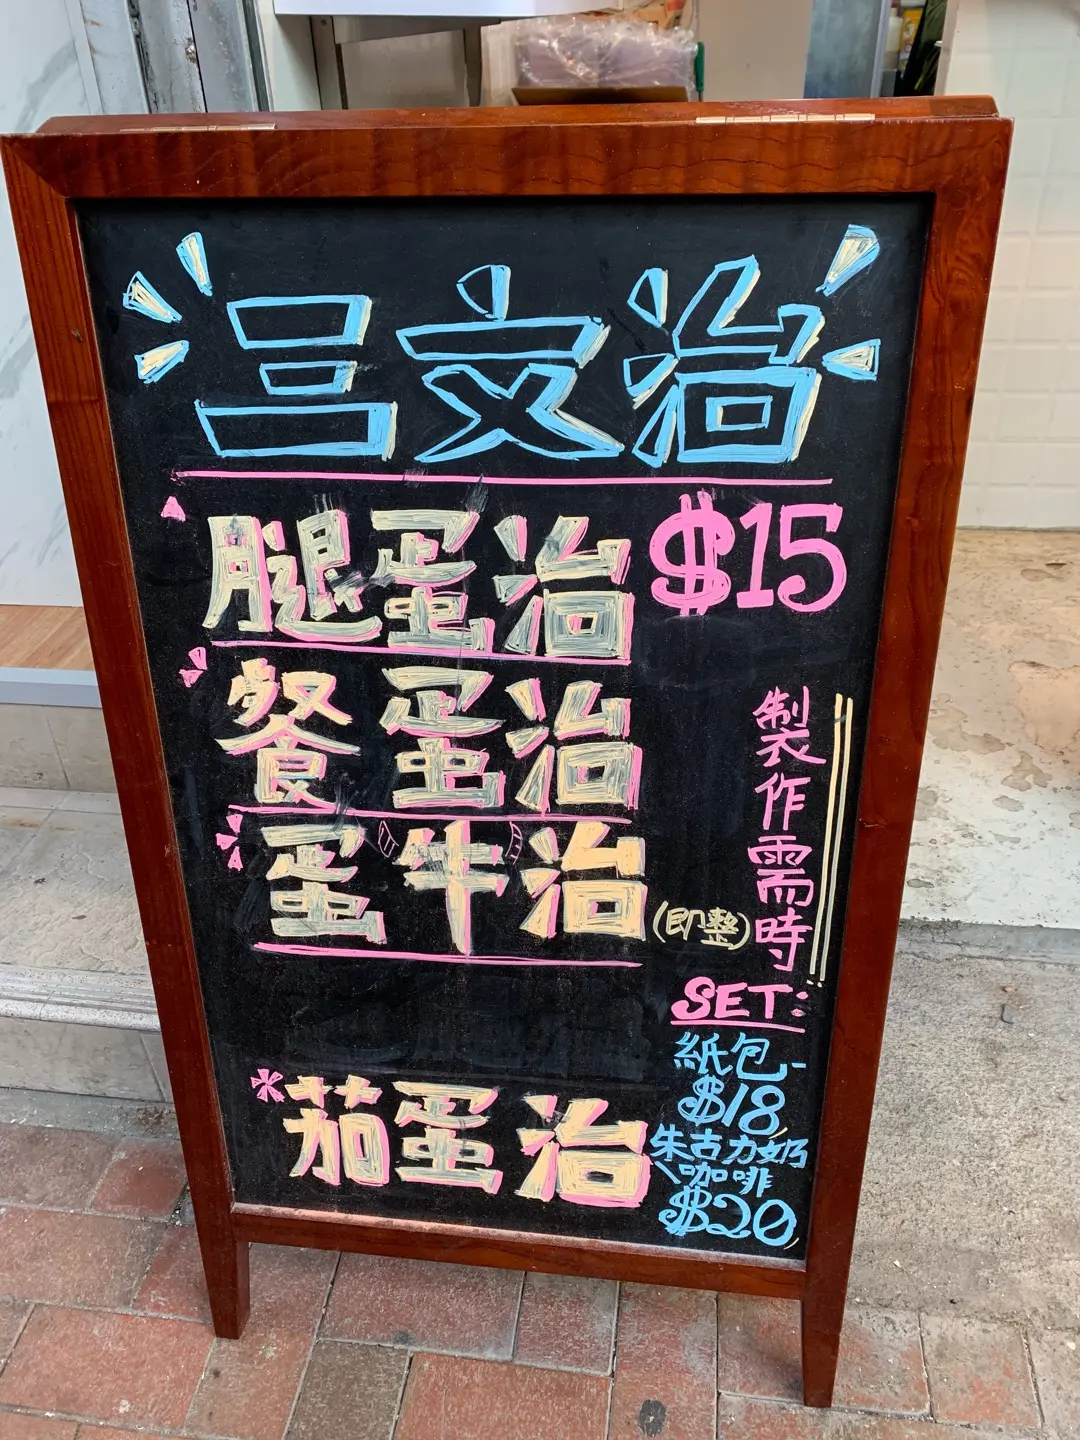 三文治
腿蛋治 $15
餐蛋治
蛋牛治
(即整)
製作需時
茄蛋治
SET:
紙包-
$18
朱古力奶
、咖啡
$20